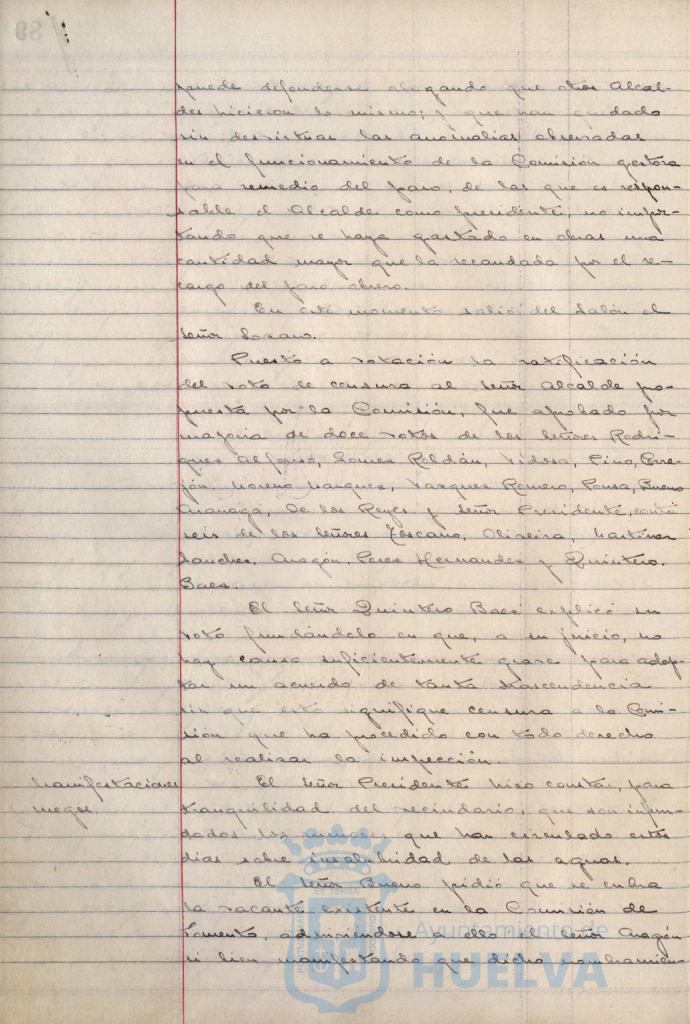 puede defenderse alegando que otros Alcal-
des hicieron lo mismo; y que han quedado
sin desvirtuar las anomalías observadas
en el funcionamiento de la Comisión gestora
para remedio del paro, de las que es respon-
sable el Alcalde como presidente, no impor-
tando que se haya gastado en obras una
cantidad mayor que la recaudada por el re-
cargo del paro obrero.
En este momento salió del Salón el
Señor Lozano.
Puesto a votación la ratificación
del voto de censura al Señor Alcalde pro-
puesta por la Comisión, fue aprobado por
mayoria de doce votos de los Señores Rodri-
guez Alfonso, Gomez Roldán, Vidosa, Pino, Corre-
jón, Moreno Marquez, Vazquez Romero, Ponsa, Bueno
Aranaga, De los Reyes y Señor Presidente, contra
seis de los Señores Toscano, Oliveira, Martinez
Sanchez, Aragón, Perez Hernandez y Quintero
Baez.
El Señor Quintero Baez explicó su
voto fundándolo en que, a su juicio, no
hay causa suficientemente grave para adop-
tar un acuerdo de tanta trascendencia
sin que esto signifique censura a la Comi-
sión que ha procedido con todo derecho
al realizar la inspección.
Manifestaciones
El Señor Presidente hizo constar, para
ruegos.
tranquilidad del vecindario, que son infun-
dados los rumores que han circulado estos
dias sobre insalubridad de las aguas.
El Señor Bueno pidió que se cubra
la vacante existente en la Comisión de
Fomento, adhiriéndose a ello el Señor Aragón
si bien manifestando que dicho nombramien-
Ayuntamiento de
HUELVA